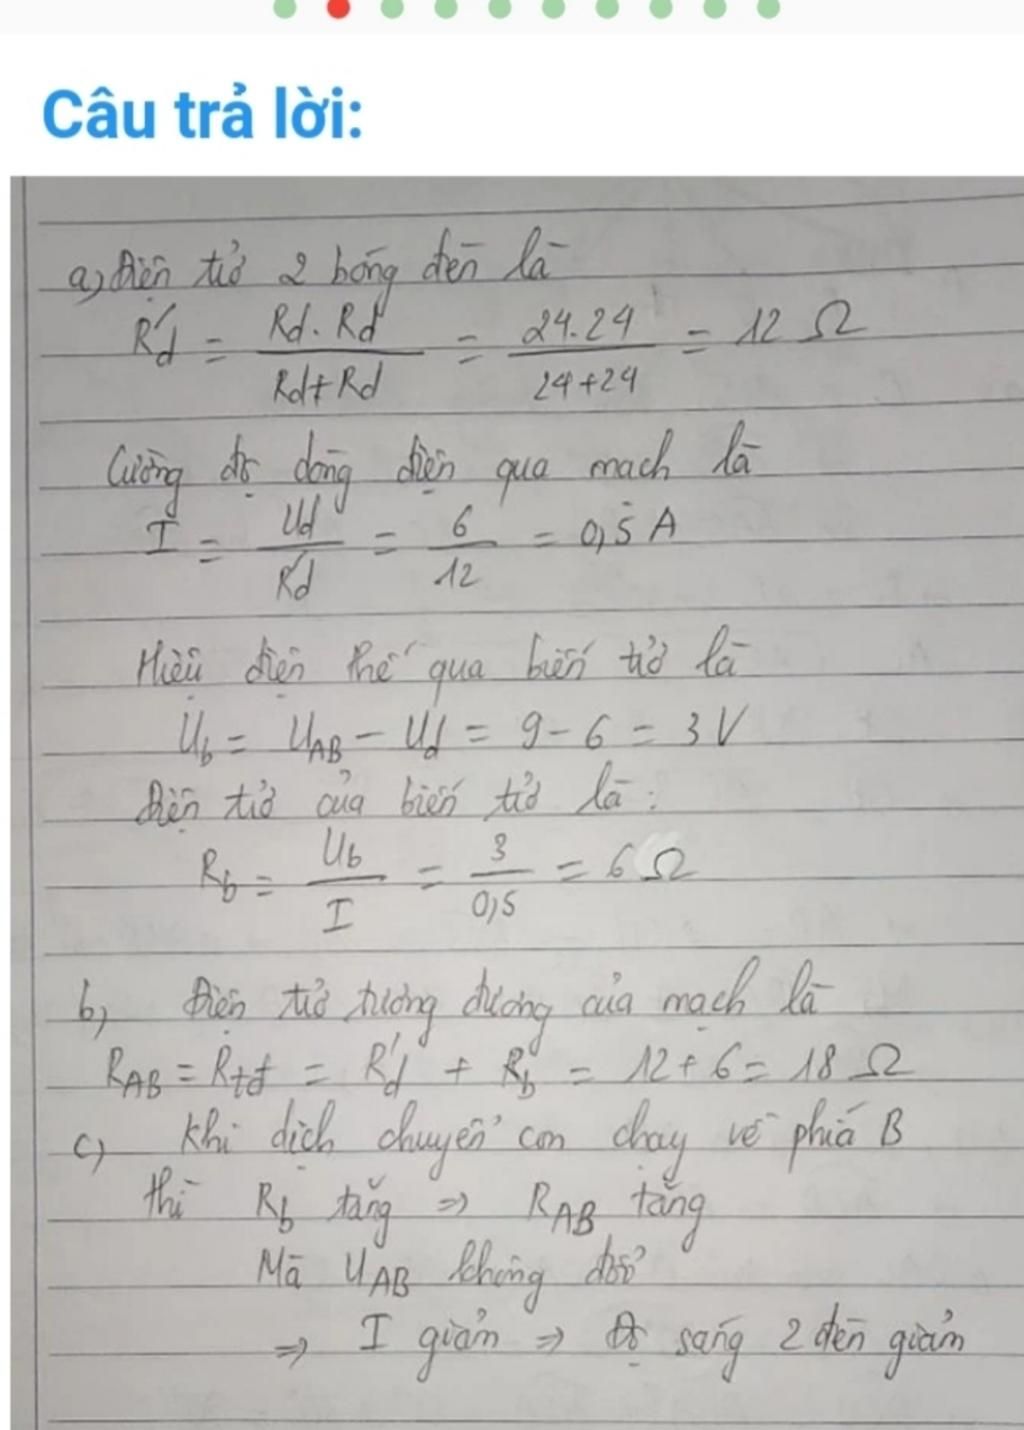 Câu trả lời:
a, Điện trở 2 bóng đèn là
R'đ = Rđ.Rđ / Rđ+Rđ = 24.24 / 24+24 = 12 Ω
Cường độ dòng điện qua mạch là
I = Uđ / R'đ = 6 / 12 = 0,5 A
Hiệu điện thế qua biến trở là
Ub = UAB - Uđ = 9 - 6 = 3 V
Điện trở của biến trở là :
Rb = Ub / I = 3 / 0,5 = 6 Ω
b, Điện trở tương đương của mạch là
RAB = Rtđ = R'đ + Rb = 12 + 6 = 18 Ω
c, Khi dịch chuyển con chạy về phía B
thì Rb tăng => RAB tăng
Mà UAB không đổi
=> I giảm => Độ sáng 2 đèn giảm